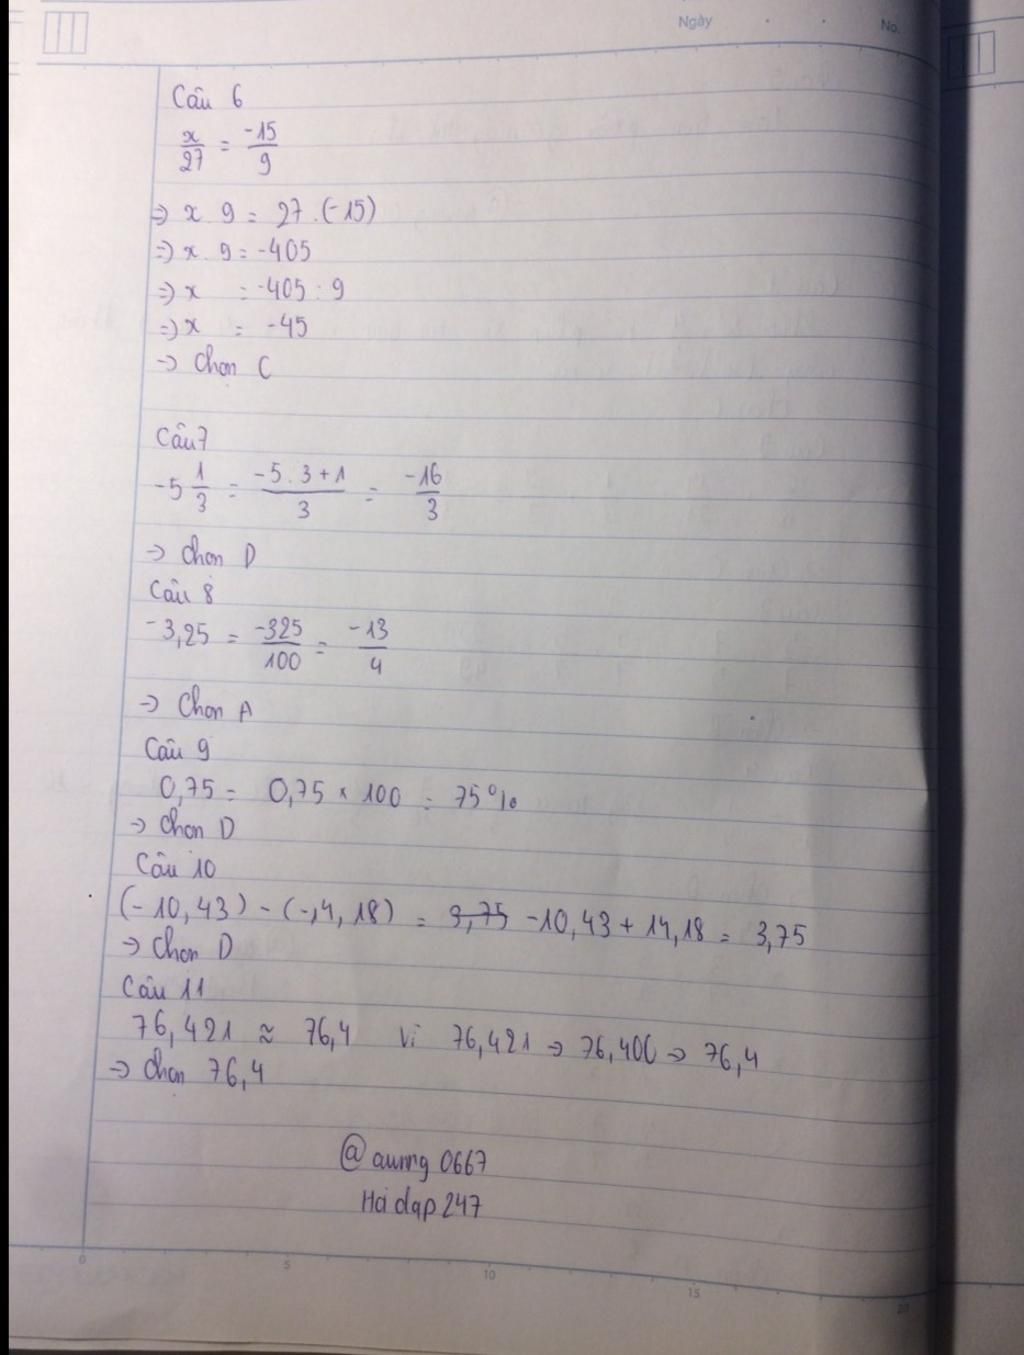 Ngày
No.
Câu 6
x/27 = -15/9
=> x . 9 = 27 . (-15)
=> x . 9 = -405
=> x = -405 : 9
=> x = -45
-> Chọn C
Câu 7
-5 1/3 = -5.3+1/3 = -16/3
-> Chọn D
Câu 8
-3,25 = -325/100 = -13/4
-> Chọn A
Câu 9
0,75 = 0,75 x 100 = 75%
-> Chọn D
Câu 10
(-10,43) - (-14,18) = 9,75 -10,43 + 14,18 = 3,75
-> Chọn D
Câu 11
76,421 ≈ 76,4 Vì 76,421 -> 76,400 -> 76,4
-> Chọn 76,4
Hoidap247
0 5 10 15 20